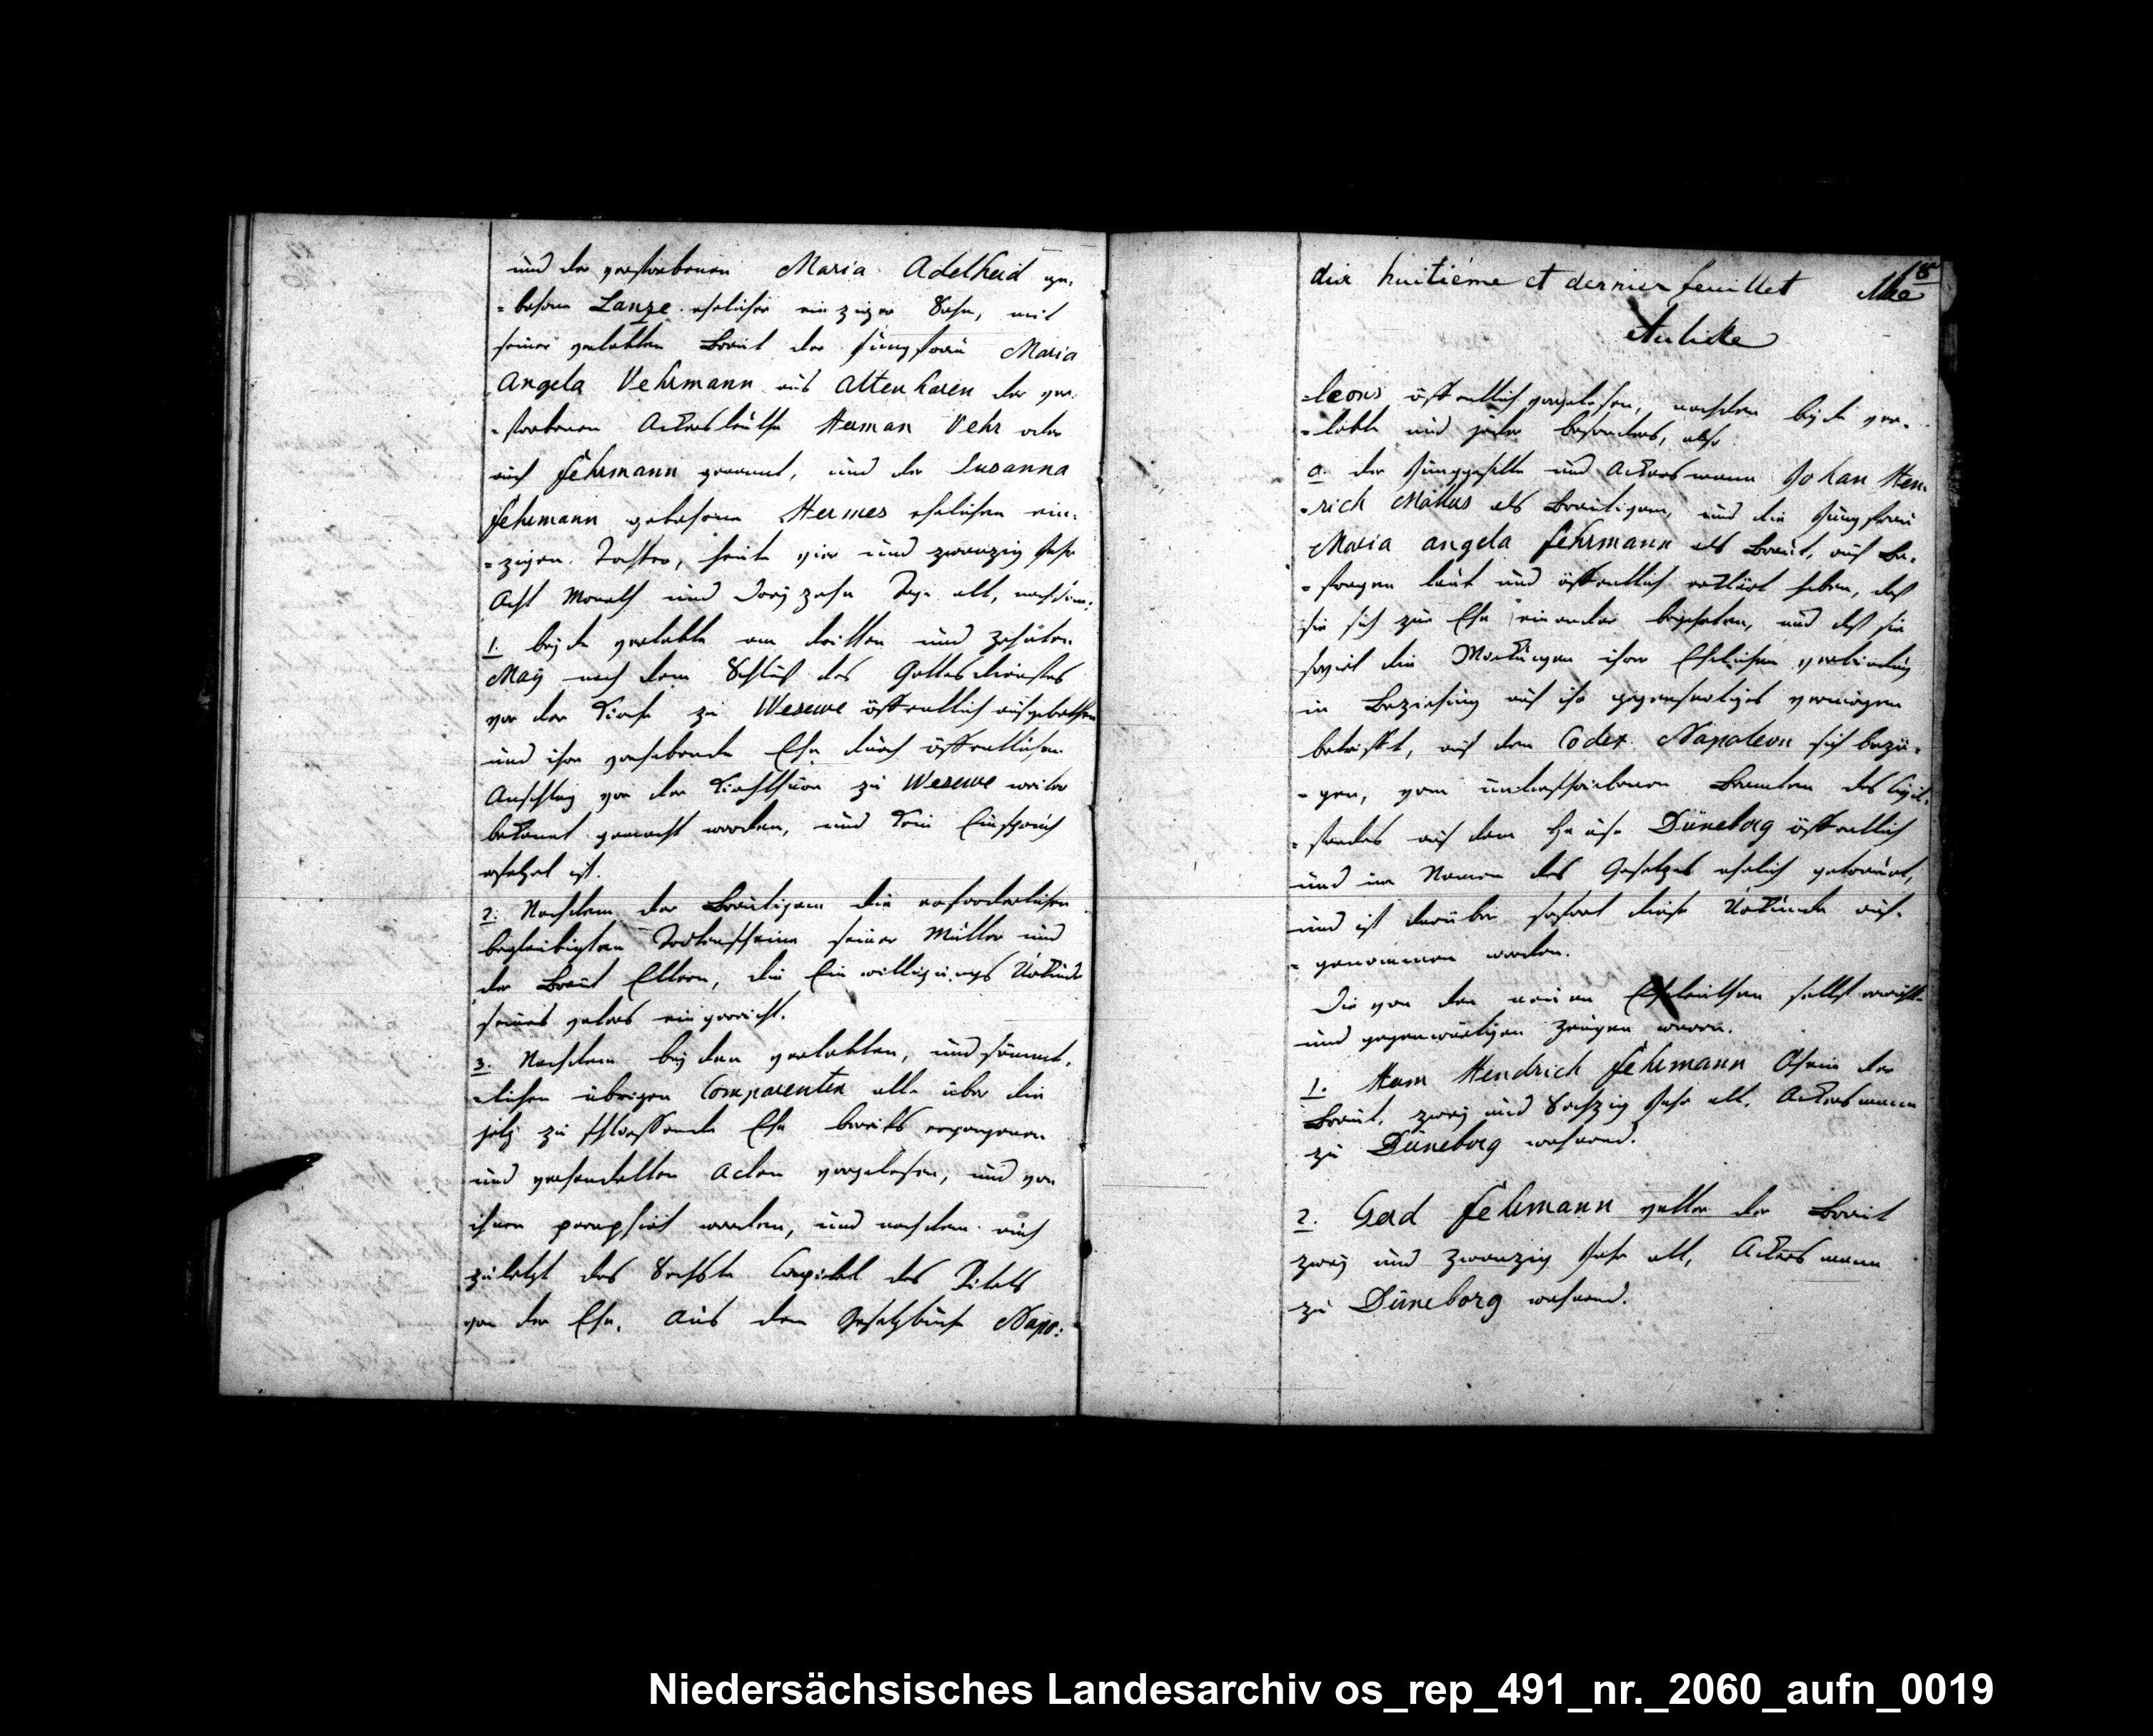 und der verstorbenen Maria Adelheid ge-
=bohrne Lanze ehelicher einziger Sohn, mit
seiner verlobten Braut der Jungfrau Maria
Angela Vehrmann aus Altenharen der ver-
=storbenen Ackersleuthe Herman Vehr oder
auch Fehrmann genannt, und der Susanna
Fehrmann gebohrne Hermes ehelichen ein-
=zigen Tochter, heute vier und zwanzig Jahr
Acht Monath und Dreyzehn Tage alt, nachdem:
1. beyde verlobte am dritten und zehnten
May nach dem Schluß des Gottesdienstes
vor der Kirche zu Wesuwe öffentlich ausgebothen
und ihre vorhabende Ehe durch öffentlichen
Anschlag vor der Kirchthüre zu Wesuwe weiter
bekannt gemacht worden, und kein Einspruch
erfolget ist.
2. Nachdem der Bräutigam die erforderlichen
beglaubigten Todtenscheine seiner Mutter und
der Braut Eltern, die Einwilligungs Urkunde
seines Vaters eingereicht.
3. Nachdem beyden verlobten, und sämmt-
=lichen übrigen Comparenten alle über die
jetz zu schliessende Ehe bereits ergangenen
und verhandelten Acten vorgelesen, und von
ihnen paraphirt worden, und nachdem auch
zuletzt das Sechste Capitel des Titels
von der Ehe, Aus dem Gesetzbuche Napo:
18
dix huitiéme et dernier feuillet
Aulike
=leons öffentlich vorgelesen, nachdem beyde ver-
=lobte und jeder besonders, also
a. der Junggeselle und Ackersmann Johan Hen-
=rich als Bräutigam, und die Jungfrau
Maria Angela Fehrmann als Braut, auf Be-
=fragen laut und öffentlich erklärt haben, daß
sie sich zur Ehe einander begehrten, und daß sie
soviel die Wirkungen ihrer Ehelichen verbindung
in Beziehung auf ihr gegenseitiges vermögen
betrifft, auf den Codex Napoleon sich bezö-
=gen, vom unterschriebenen Beamten des Civil-
=standes auf dem Hause Düneborg öffentlich
und im Namen des Gesetzes ehelich getrauet,
und ist darüber sofort diese Urkunde auf-
=genommen worden.
Die von den neuen Eheleuthen selbst erwählte
und gegenwärtigen Zeugen waren.
1. Herm Hendrich Fehrmann Oheim der
Braut, zwey und Sechzig Jahr alt, Ackersmann
zu Düneborg wohnend.
2. Gerd Fehrmann vetter der Braut
zwey und zwanzig Jahr alt, Ackersmann
zu Düneborg wohnend.
Niedersächsisches Landesarchiv os_rep_491_nr._2060_aufn_0019